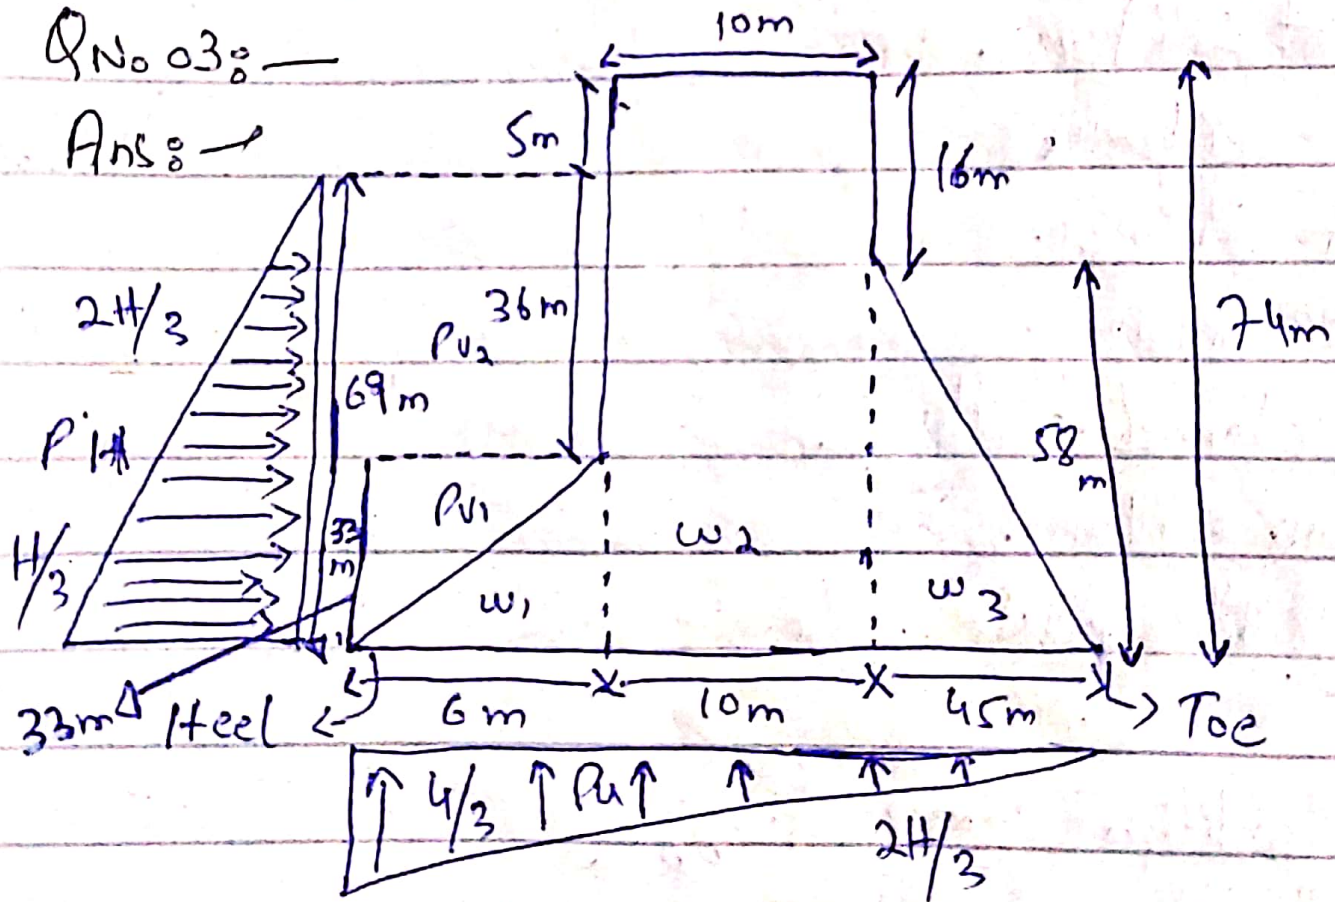 QNo 03:—
Ans:—
10m
5m
16m
2H/3
36m
Pv2
74m
69m
PH
58
m
Pv1
33
m
w2
H/3
w1
w3
33m
Heel
6m
10m
45m
Toe
4/3
Pu
2H/3